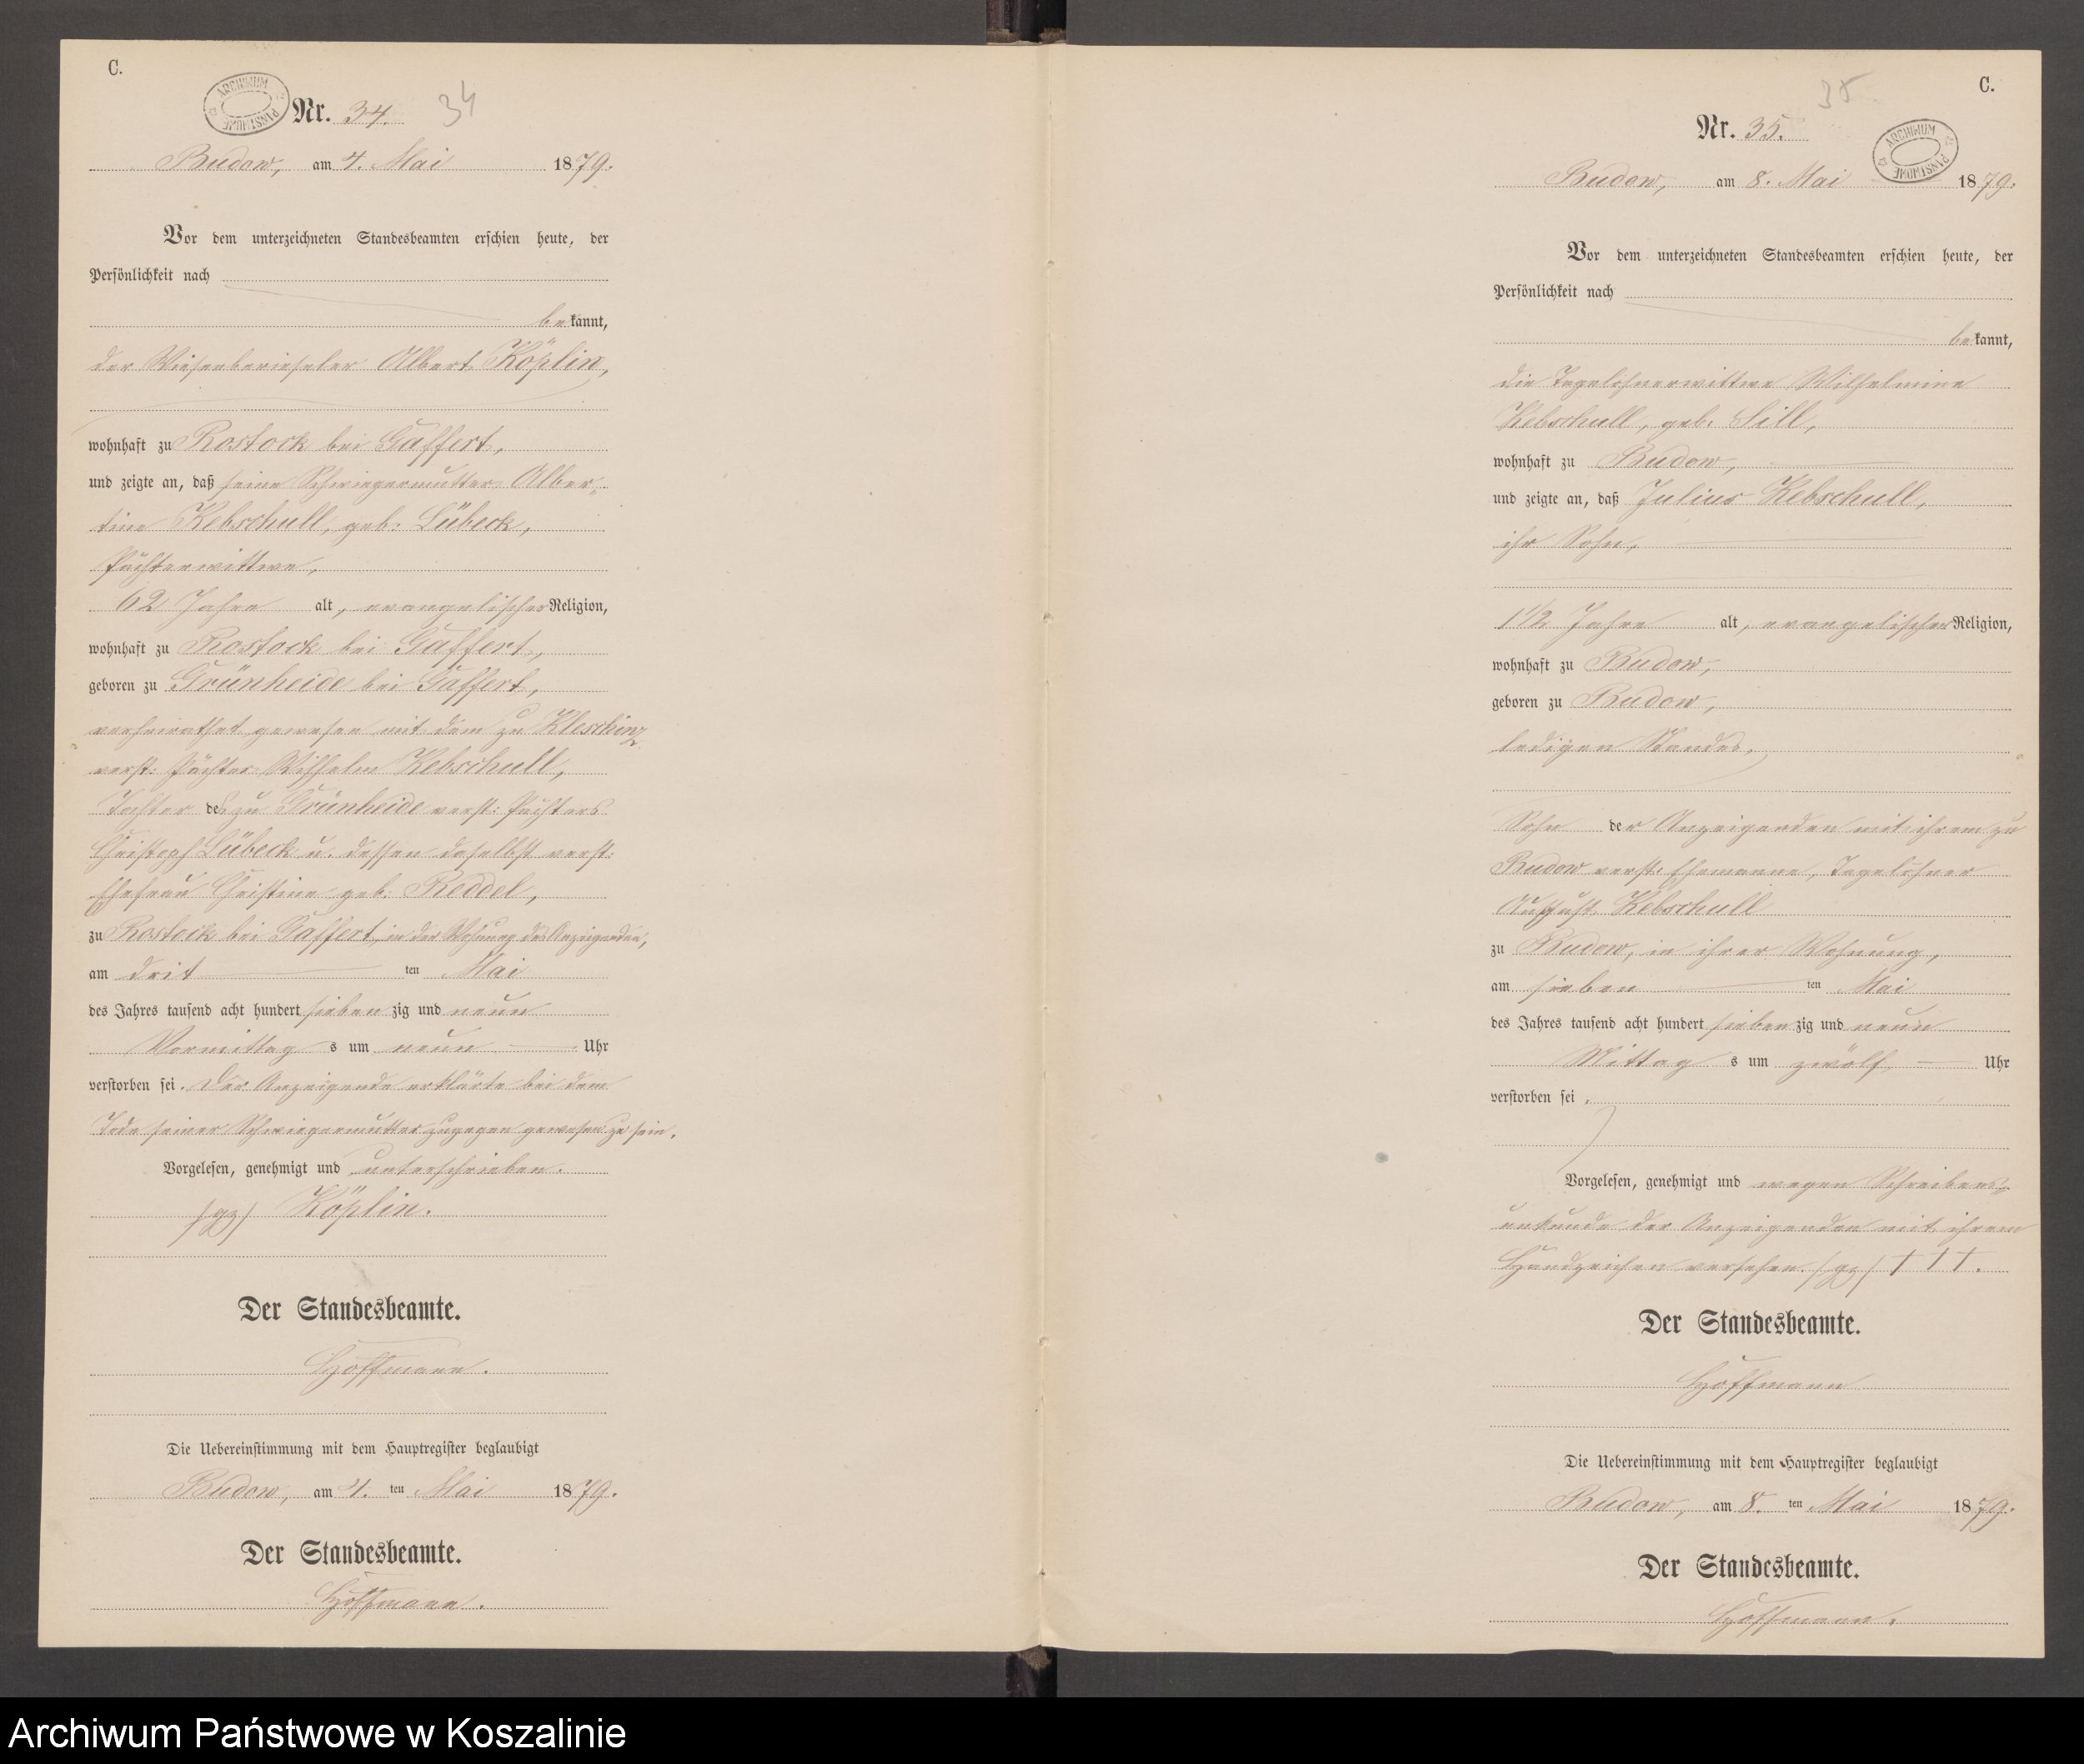 C.
ARCHIWUM PAŃSTWOWE
Nr. 34. 34
Budow, am 4. Mai 1879.
Vor dem unterzeichneten Standesbeamten erschien heute, der
Persönlichkeit nach
bekannt,
der Wiesenberieseler Albert Köplin,
wohnhaft zu Rostock bei Gaffert,
und zeigte an, daß seine Schwiegermutter Alber-
tine Kebschull, geb. Lübeck,
Pächterwittwe,
62 Jahre alt, evangelischer Religion,
wohnhaft zu Rostock bei Gaffert,
geboren zu Grünheide bei Gaffert,
verheirathet gewesen mit dem zu Kleschinz
verst: Pächter Wilhelm Kebschull,
Tochter des zu Grünheide verst: Pächters
Christoph Lübeck u. dessen daselbst verst:
Ehefrau Christine geb: Reddel,
zu Rostock bei Gaffert, in der Wohnung des Anzeigenden,
am drit ten Mai
des Jahres tausend acht hundert siebenzig und neun
Vormittags um neun Uhr
verstorben sei. Der Anzeigende erklärte bei dem
Tode seiner Schwiegermutter zugegen gewesen zu sein.
Vorgelesen, genehmigt und unterschrieben.
/gz/ Köplin.
Der Standesbeamte.
Hoffmann.
Die Uebereinstimmung mit dem Hauptregister beglaubigt
Budow, am 4. ten Mai 1879.
Der Standesbeamte.
Hoffmann.
C.
35
Nr. 35.
ARCHIWUM PAŃSTWOWE
Budow, am 8. Mai 1879.
Vor dem unterzeichneten Standesbeamten erschien heute, der
Persönlichkeit nach
bekannt,
die Tagelöhnerwittwe Wilhelmine
Kebschull, geb. Sill,
wohnhaft zu Budow,
und zeigte an, daß Julius Kebschull,
ihr Sohn,
1 1/2 Jahre alt, evangelischer Religion,
wohnhaft zu Budow,
geboren zu Budow,
ledigen Standes,
Sohn der Anzeigenden mit ihrem zu
Budow verst: Ehemanne, Tagelöhner
August Kebschull
zu Budow, in ihrer Wohnung,
am sieben ten Mai
des Jahres tausend acht hundert siebenzig und neun
Mittags um zwölf Uhr
verstorben sei.
Vorgelesen, genehmigt und wegen Schreibens-
unkunde der Anzeigenden mit ihrem
Handzeichen versehen. /gz/ † † †.
Der Standesbeamte.
Hoffmann
Die Uebereinstimmung mit dem Hauptregister beglaubigt
Budow, am 8. ten Mai 1879.
Der Standesbeamte.
Hoffmann.
Archiwum Państwowe w Koszalinie